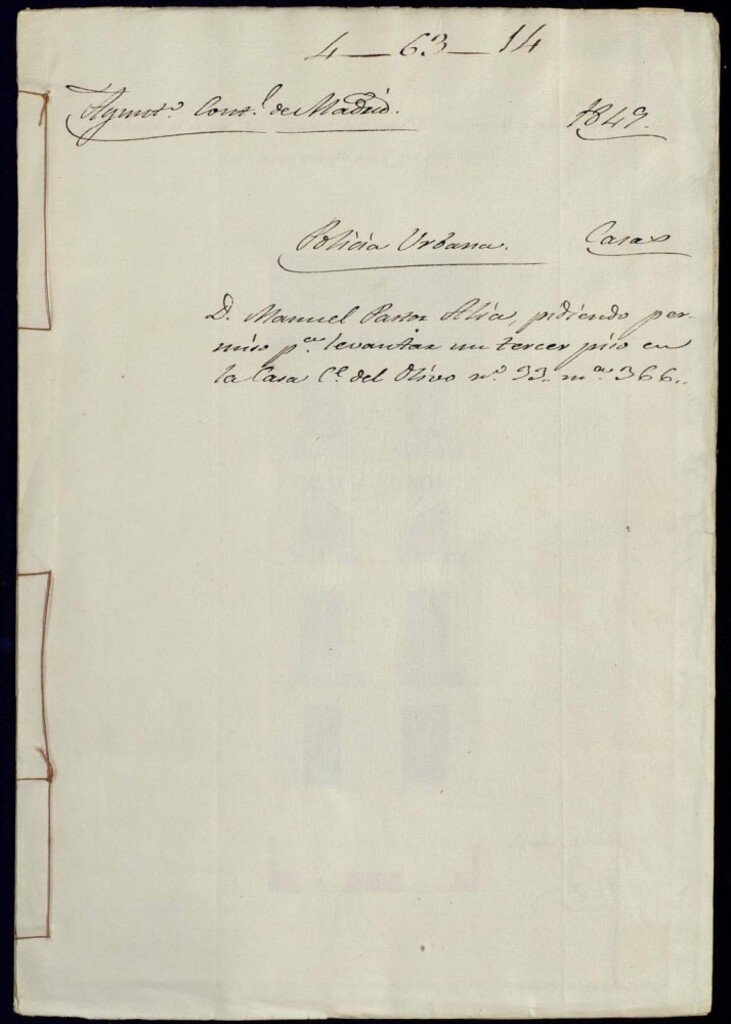 4-63-14
Ayunt.º Cons.l de Madrid. 1849.
Policia Urbana. Casas
D. Manuel Pastor Alia, pidiendo per-
miso p.ª levantar un tercer piso en
la Casa C.e del Olivo n.º 33. m.a 366..